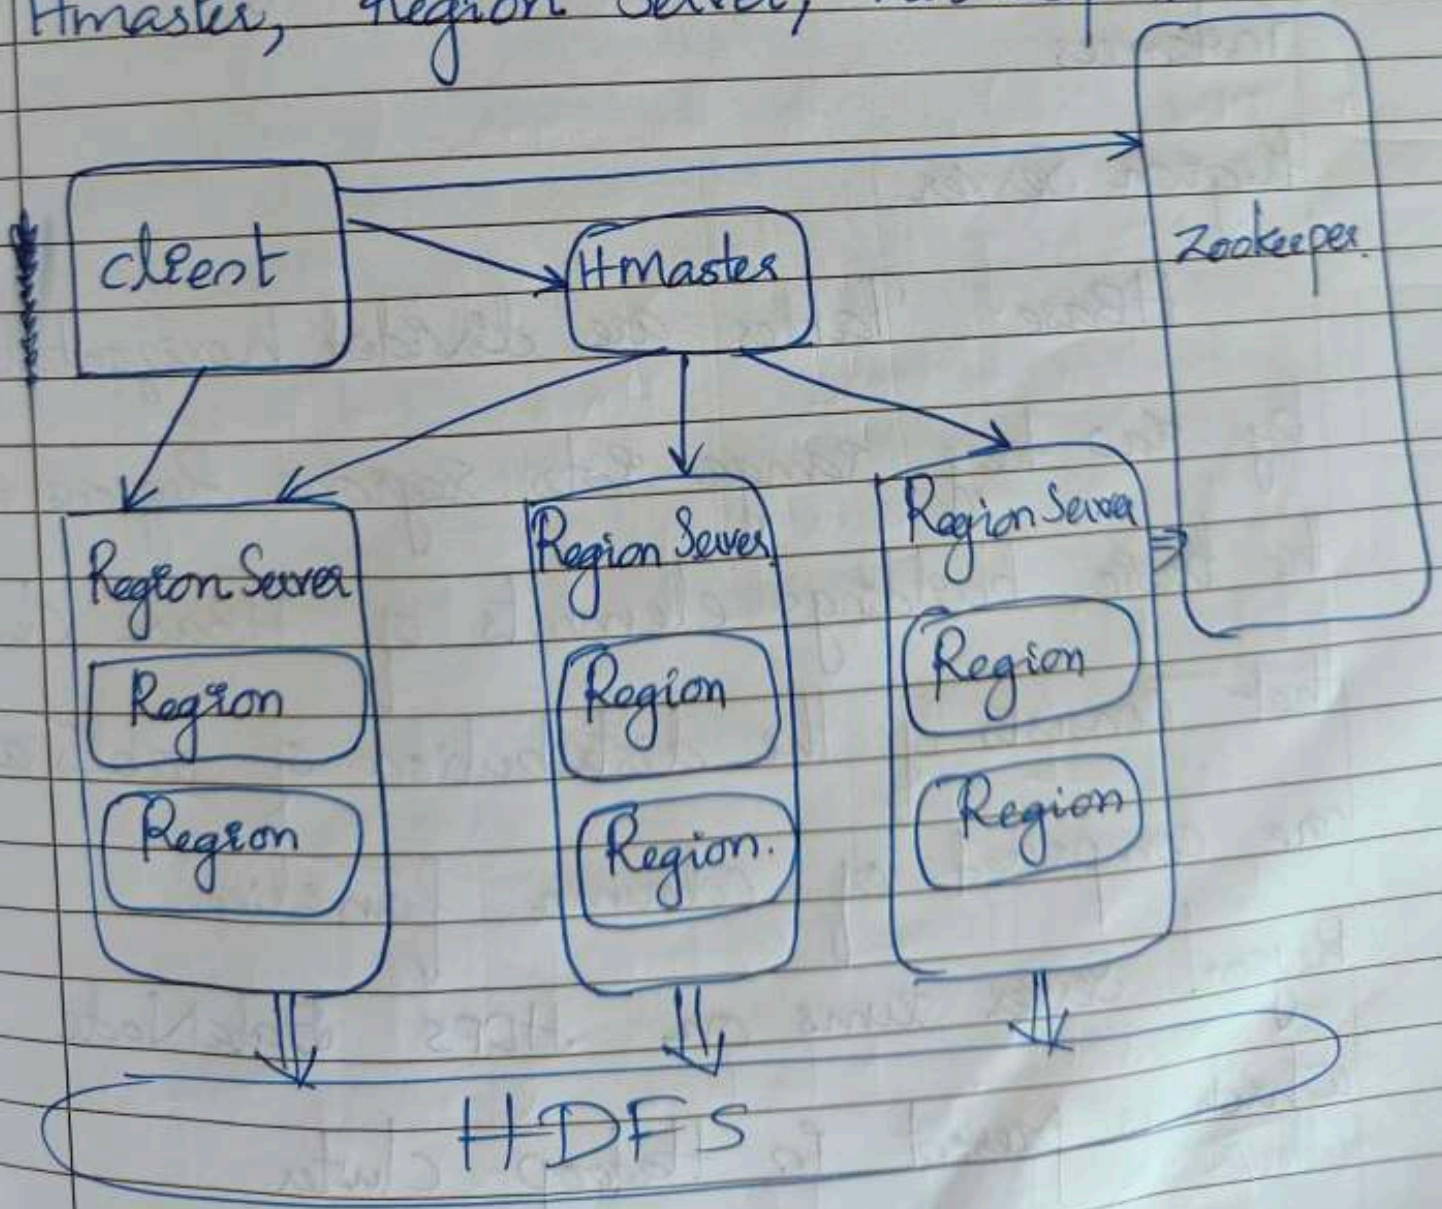 Hmaster, Region Server,
client
HMaster
Zookeeper.
Region Server
Region Server
Region Server
Region
Region
Region
Region
Region.
Region
HDFS